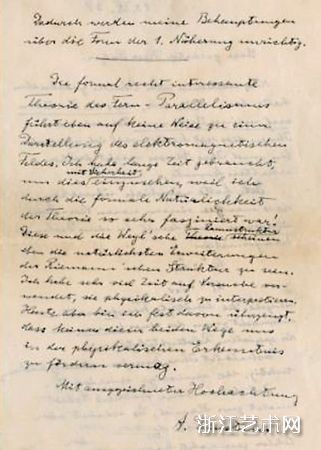 Dadurch werden meine Behauptungen
über die Form der 1. Näherung unrichtig.
Die formal recht interessante
Theorie des Fern-Parallelismus
führt eben auf keine Weise zu einer
Darstellung des elektromagnetischen
Feldes. Ich habe lange Zeit gebraucht,
mit Sicherheit
um dies einzusehen, weil ich
durch die formale Natürlichkeit
der Theorie so sehr fasziniert war!
Raumstruktur
Diese und die Weyl'sche Theorie
eben die natürlichsten Erweiterungen
der Riemann'schen Struktur zu sein.
Ich habe sehr viel Zeit auf Versuche ver-
wendet, sie physikalisch zu interpretieren.
Heute aber bin ich fest davon überzeugt,
dass keiner dieser beiden Wege uns
in der physikalischen Erkenntnis
zu fördern vermag.
Mit ausgezeichneter Hochachtung
A. Einstein
浙江艺术网